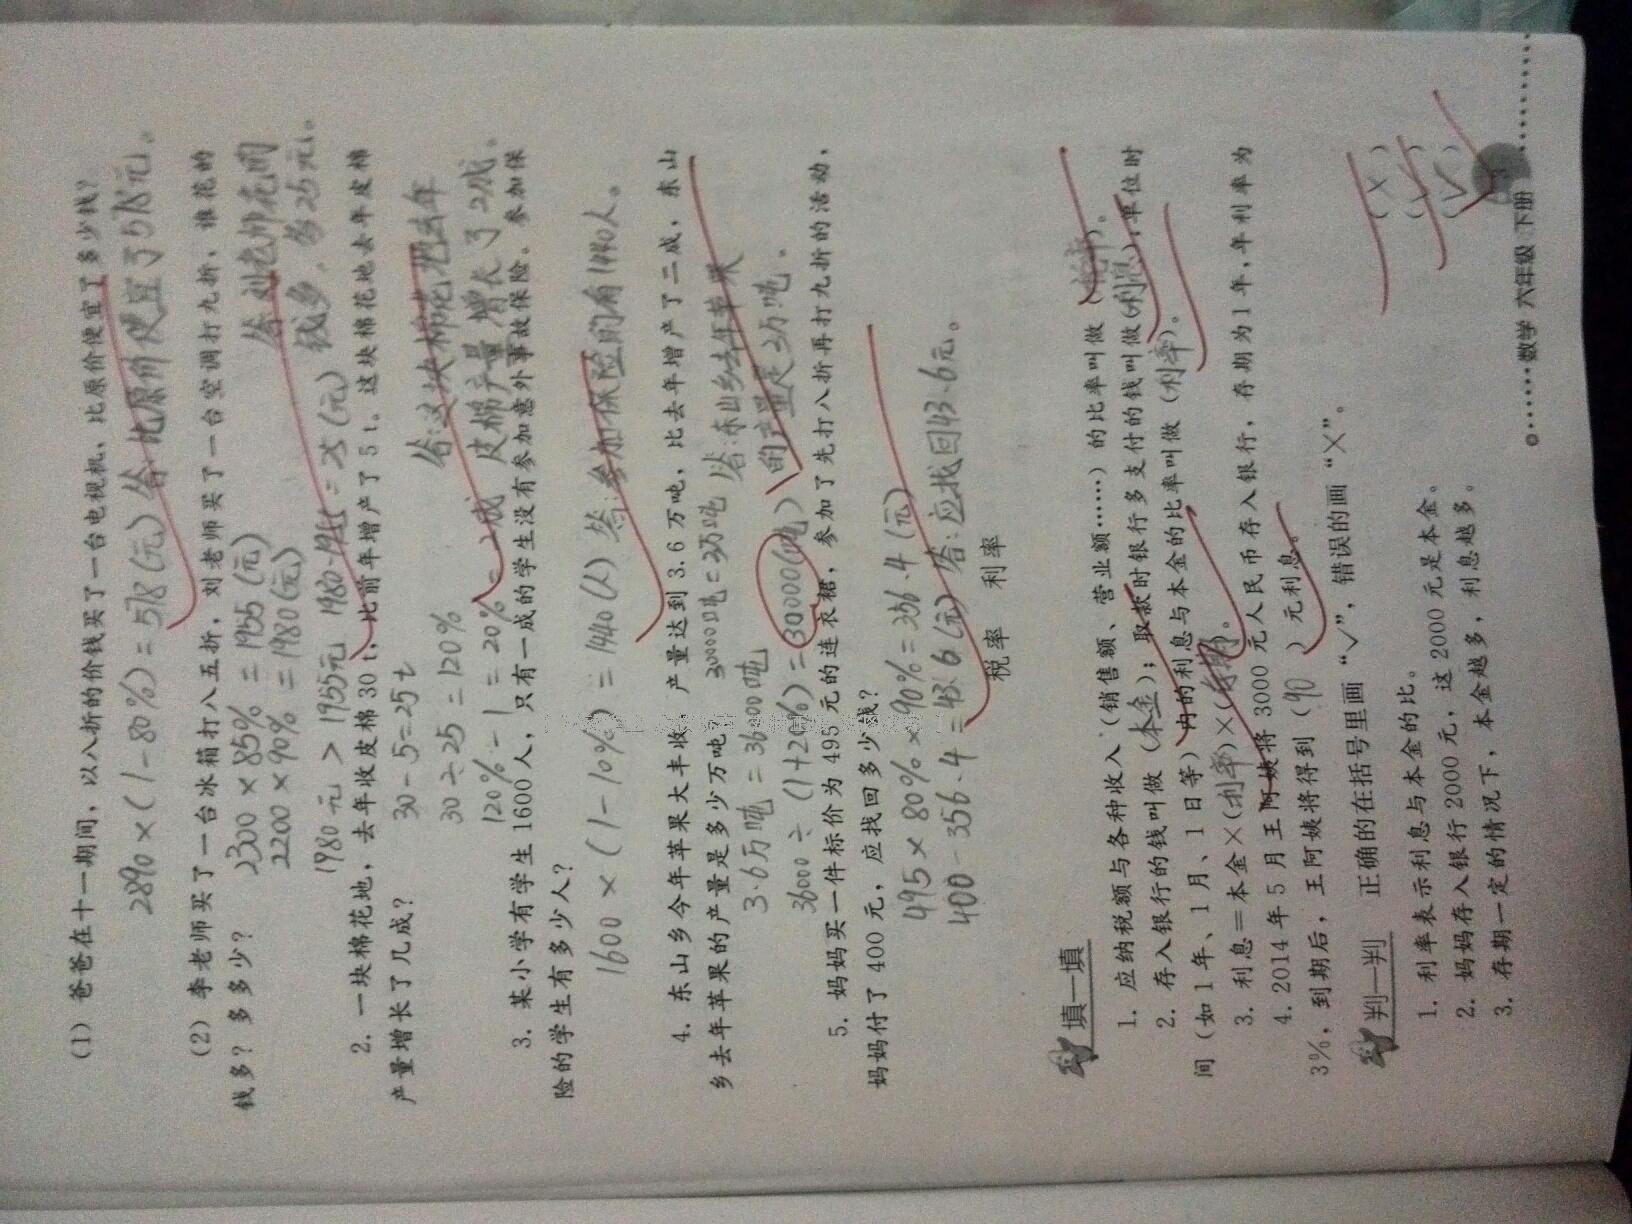 (1) 爸爸在十一期间，以八折的价钱买了一台电视机，比原价便宜了多少钱？
2890×(1-80%)=578(元) 答:比原价便宜了578元。
(2) 李老师买了一台冰箱打八五折，刘老师买了一台空调打九折，谁花的
钱多？多多少？
2300×85%=1955(元)
2200×90%=1980(元)
答:刘老师花的
1980元>1955元 1980-1955=25(元)
钱多，多25元。
2. 一块棉花地，去年收皮棉30 t，比前年增产了5 t，这块棉花地去年皮棉
产量增长了几成？
30-5=25t
30÷25=120%
答:这块棉花地去年
120%-1=20%=2成
皮棉产量增长了2成。
3. 某小学有学生1600人，只有一成的学生没有参加意外事故保险。参加保
险的学生有多少人？
1600×(1-10%)=1440(人) 答:参加保险的有1440人。
4. 东山乡今年苹果大丰收，产量达到3.6万吨，比去年增产了二成，东山
乡去年苹果的产量是多少万吨？
30000吨=3万吨 答:东山乡去年苹果
3.6万吨=36000吨
的产量是3万吨。
36000÷(1+20%)=30000(吨)
5. 妈妈买一件标价为495元的连衣裙，参加了先打八折再打九折的活动，
妈妈付了400元，应找回多少钱？
495×80%×90%=356.4(元)
400-356.4=43.6(元) 答:应找回43.6元。
税率 利率
填一填
1. 应纳税额与各种收入(销售额、营业额……)的比率叫做(税率)。
2. 存入银行的钱叫做(本金)；取款时银行多支付的钱叫做(利息)；单位时
间(如1年、1月、1日等)内的利息与本金的比率叫做(利率)。
3. 利息=本金×(利率)×(存期)。
4. 2014年5月王阿姨将3000元人民币存入银行，存期为1年，年利率为
3%，到期后，王阿姨将得到(90)元利息。
判一判 正确的在括号里画“√”，错误的画“×”。
1. 利率表示利息与本金的比。(×)
2. 妈妈存入银行2000元，这2000元是本金。(√)
3. 存期一定的情况下，本金越多，利息越多。(√)
数学 六年级 下册